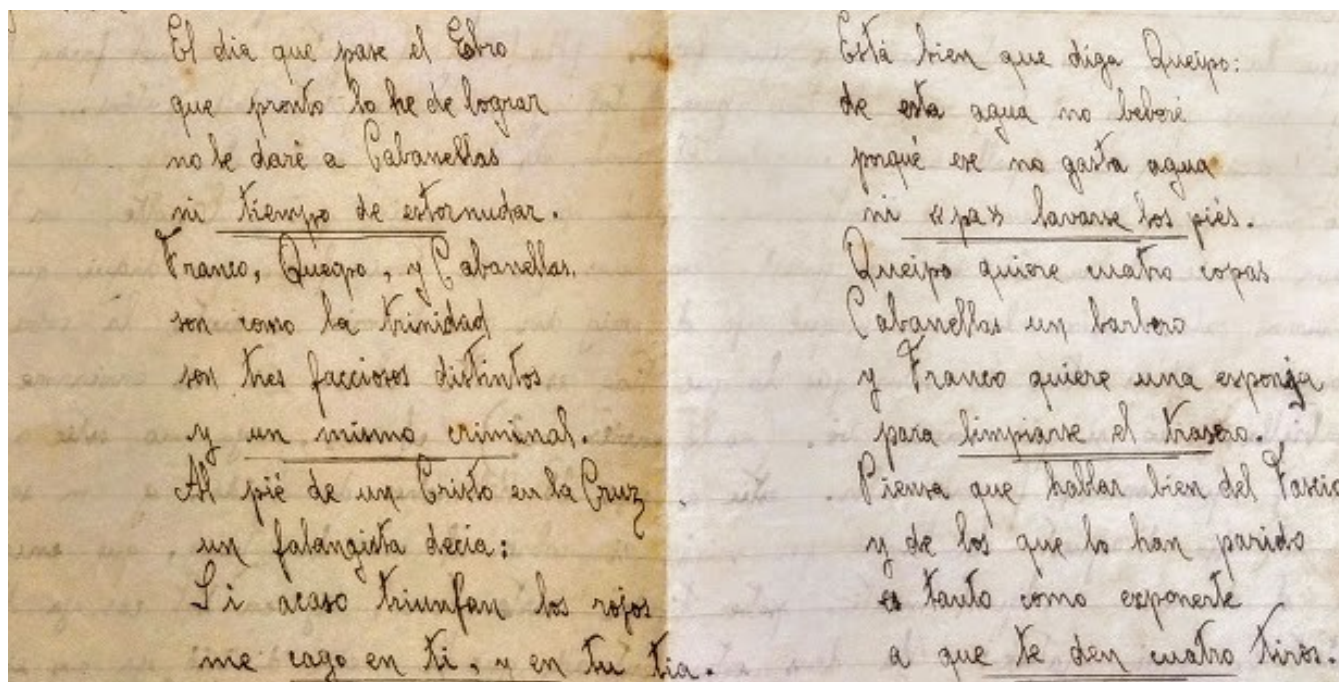 El dia que pase el Ebro
que pronto lo he de lograr
no le daré a Cabanellas
ni tiempo de estornudar.
Franco, Queipo, y Cabanellas.
son como la trinidad
son tres facciosos distintos
y un mismo criminal.
Al pié de un Cristo en la Cruz
un falangista decia:
Si acaso triunfan los rojos
me cago en ti, y en tu tia.
Está bien que diga Queipo:
de esta agua no beberé
porqué ese no gasta agua
ni «pa» lavarse los piés.
Queipo quiere cuatro copas
Cabanellas un barbero
y Franco quiere una esponja
para limpiarse el trasero.
Piensa que hablar bien del Fascio
y de los que lo han parido
es tanto como exponerte
a que te den cuatro tiros.